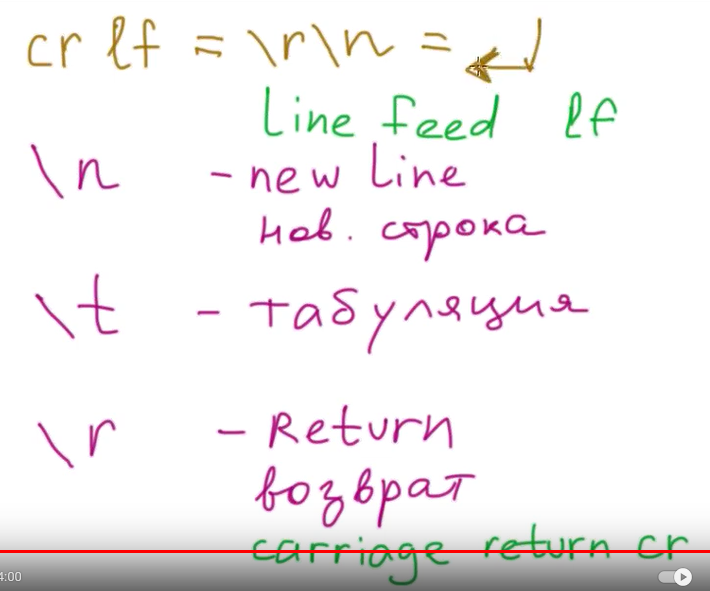 cr lf = \r\n = ↵
Line feed lf
\n - new line
нов. строка
\t - табуляция
\r - Return
возврат
carriage return cr
4:00